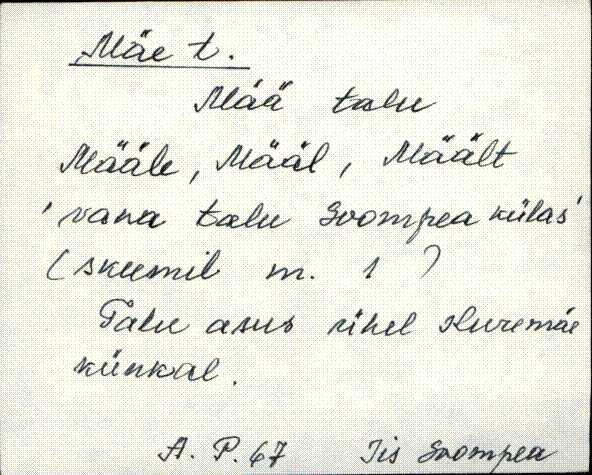 Mäe t.
Mää talu
Määle, Määl, Mäält
'vana talu Soompea külas'
(skeemil nr. 1)
Talu asus ühel Kuremäe
künkal.
A. P. 67 Iis Soompea